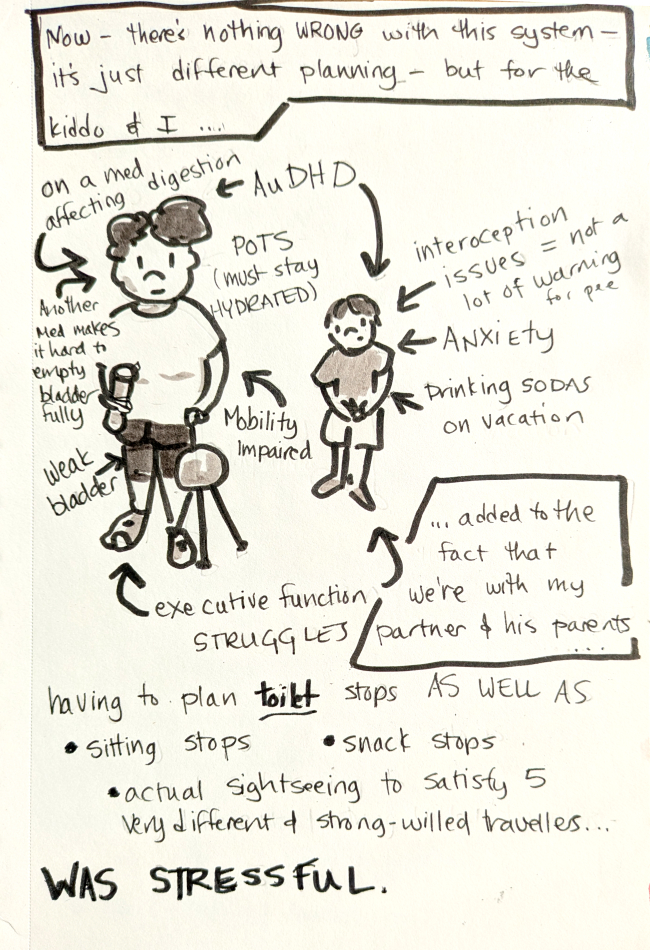 Now - there's nothing WRONG with this system -
it's just different planning - but for the
kiddo & I ....
on a med
affecting
digestion
AuDHD
POTS
(must stay
HYDRATED)
interoception
issues = not a
lot of warning
for pee
Another
Med makes
it hard to
empty
bladder
fully
ANXIETY
Drinking SODAS
on vacation
Mobility
Impaired
weak
bladder
executive function
STRUGGLES
... added to the
fact that
we're with my
partner & his parents
....
having to plan toilet stops AS WELL AS
• sitting stops • snack stops
• actual sightseeing to satisfy 5
very different & strong-willed travellers...
WAS STRESSFUL.